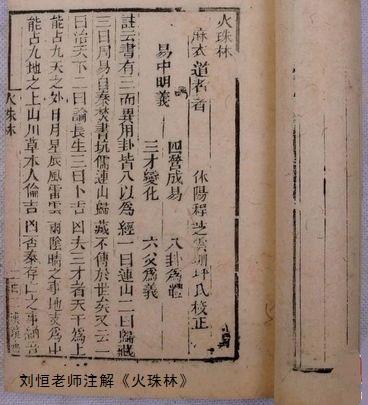 火珠林
麻衣道者著 休陽程芝雲珊坪氏校正
四營成易 八卦為體
易中明義
三才變化 六爻為義
註云書有三而異用卦皆八以為經一曰連山二曰歸藏
三曰周易自秦焚書坑儒連山歸藏不傳於世矣又云一
曰治天下二曰論長生三曰卜吉凶夫三才者天為上
能占九天之外日月星辰風雷雲雨陰晴之事地支為中
能占九地之上山川草木人倫吉凶否泰存亡之事
火珠林
刘恒老师注解《火珠林》